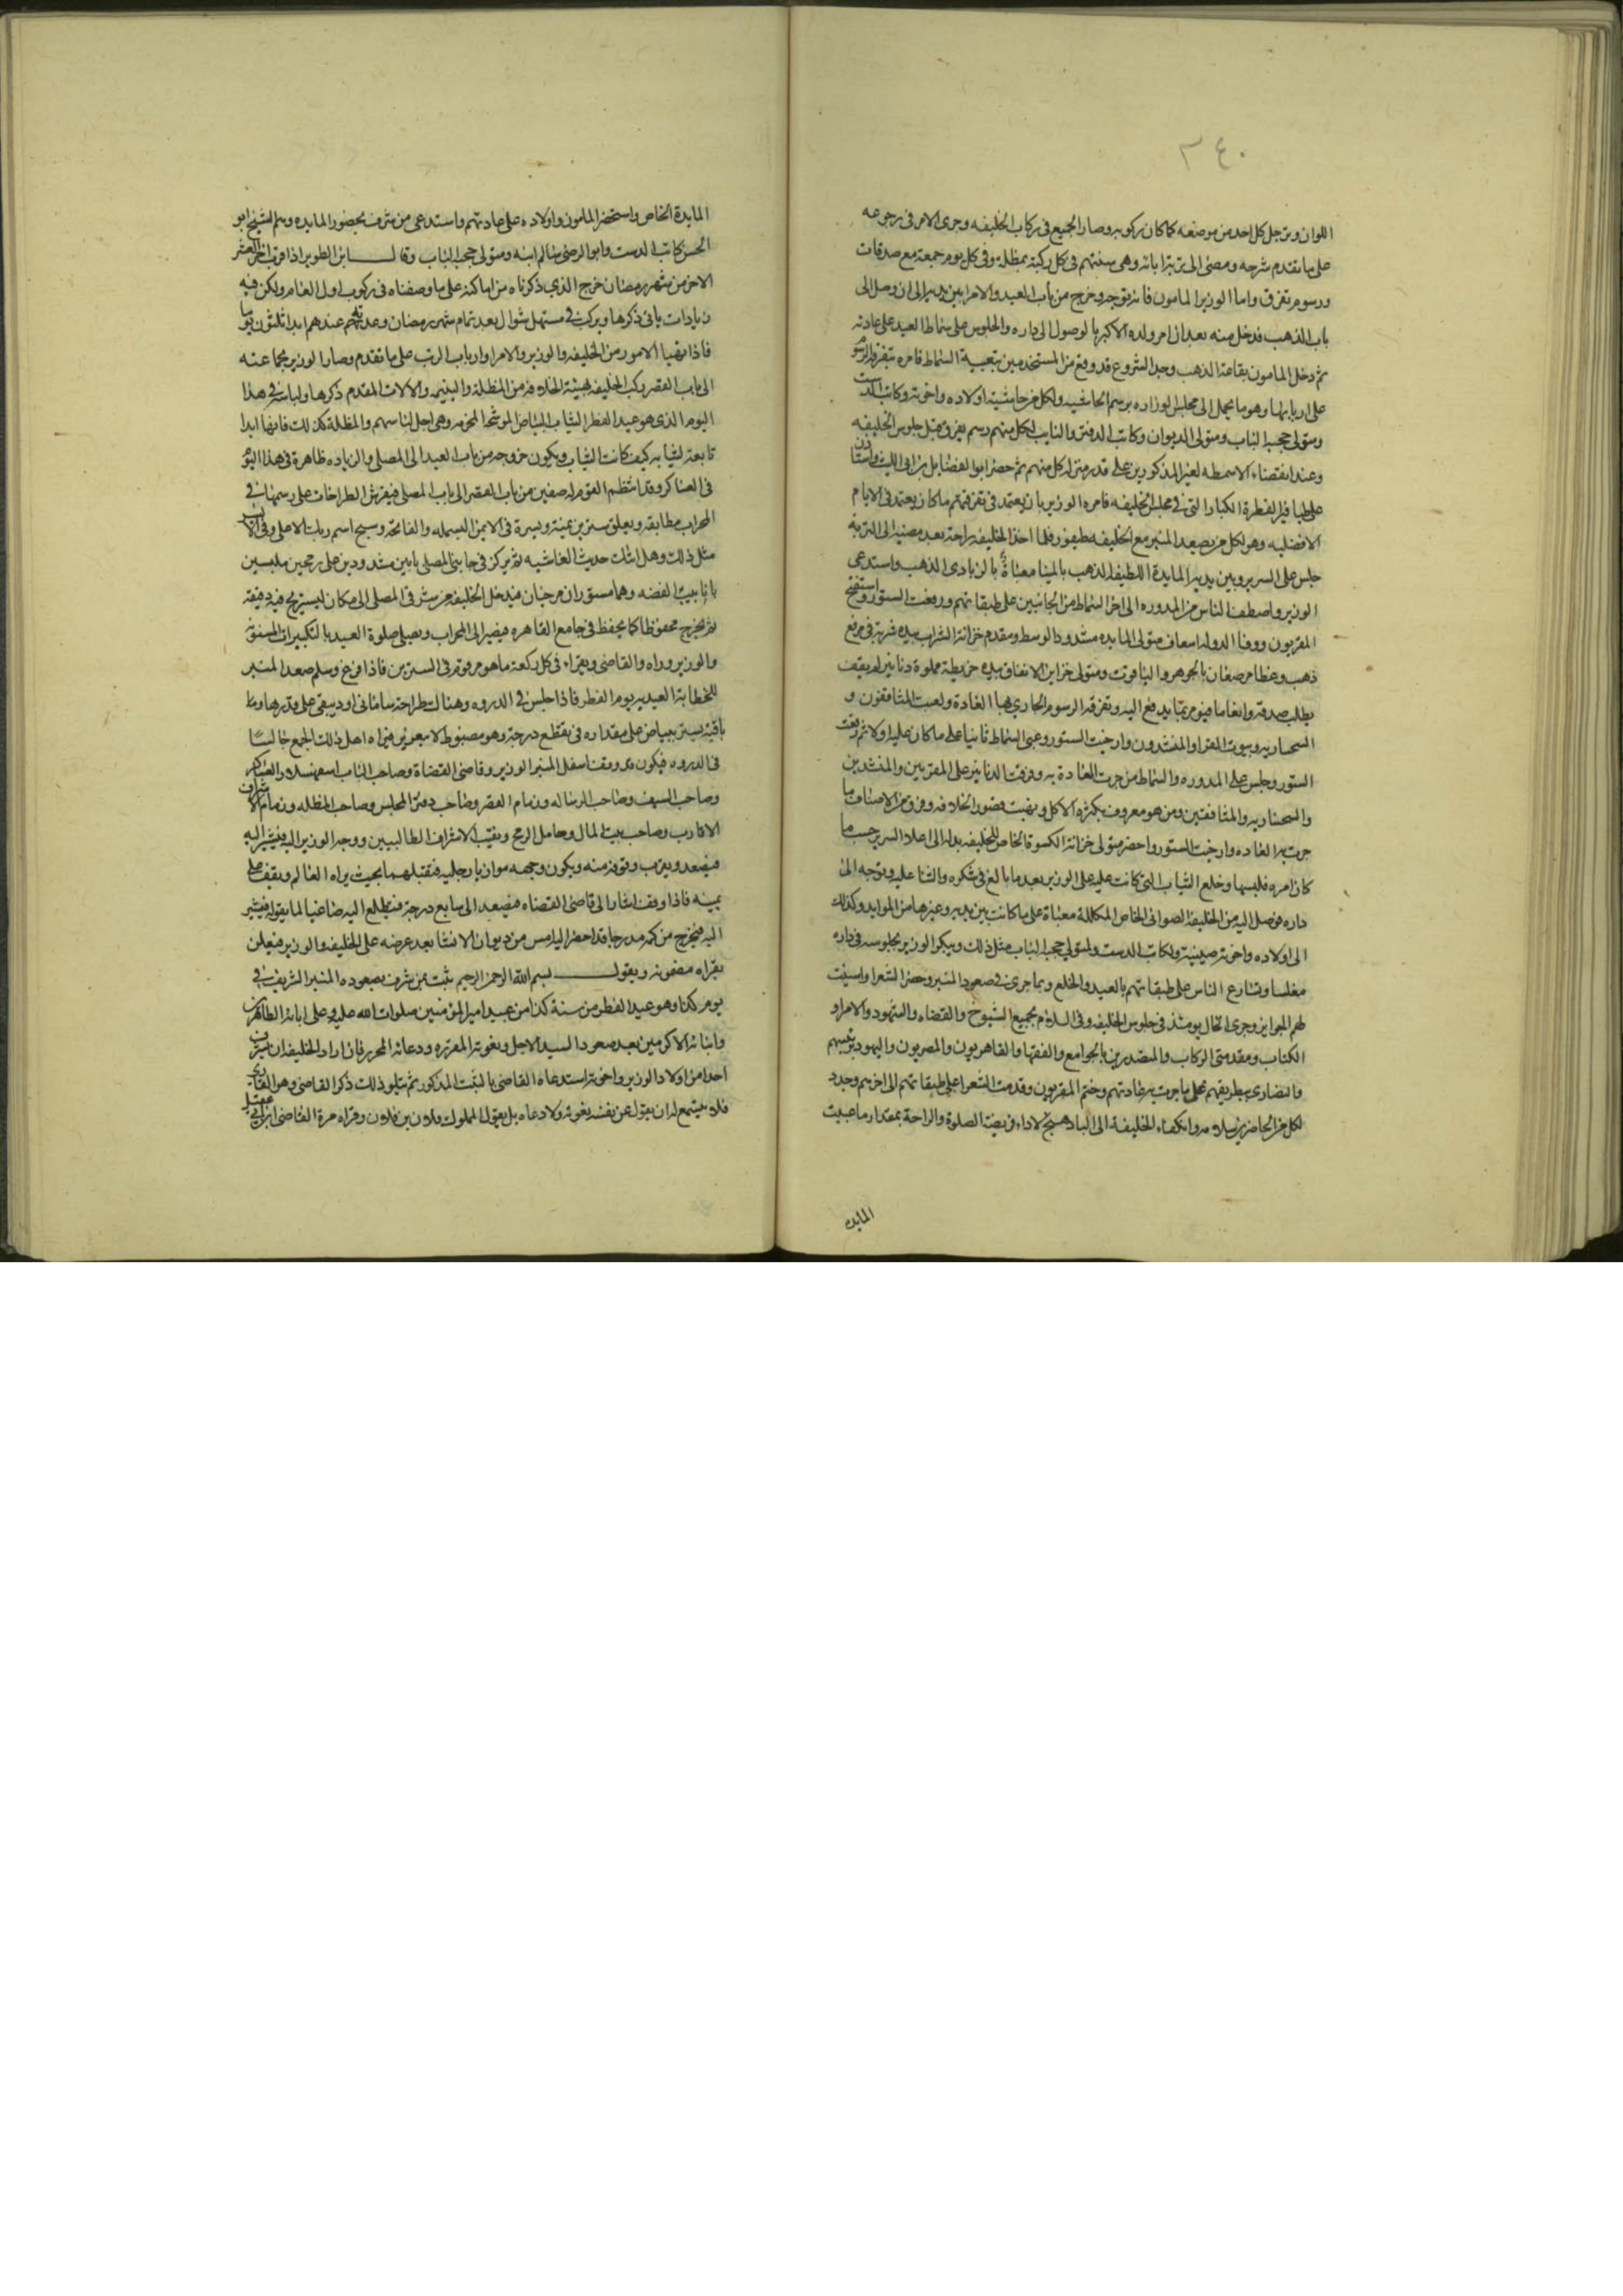 ٣٤٠
اللوان وترجل كل احد من موضعه كما كان ركوبه وصار الجميع فى ركاب الخليفه وجرى الامر فى رجوعه
على ما تقدم شرحه ومضى الى تربة ابائه وهى سنتهم فى كل ركبة بمظلة وفى كل يوم جمعة مع صدقات
ورسوم تفرق واما الوزير المامون فانه توجه وخرج من باب العيد والامرا بين يديه الى ان وصل الى
باب الذهب فدخل منه بعد ان امر ولده الاكبر بالوصول الى داره والجلوس على سماط العيد على عادته
ثم دخل المامون بقاعة الذهب وجد الشروع قد وقع من المستخدمين بتعبية السماط فامره بتفرقة الرسو
على اربابها وهو ما يحمل الى مجلس الوزاره برسم الحاشيه ولكل من حاشية اولاده واخوته وكاتب الدست
ومتولى حجبة الباب ومتولى الديوان وكاتب الدفتر والنايب لكل منهم رسم يفرق قبل جلوس الخليفه
وعند انقضاء الاسمطه لغير المذكورين على قدر منزلة كل منهم ثم حضر ابو الفضايل بن ابى الليث واستاذن
على طيافير الفطرة الكبار التى فى مجلس الخليفه فامره الوزير بان يعتمد فى تفرقتها ما كان يعتمد فى الايام
الافضليه وهو لكل من يصعد المنبر مع الخليفه طيفور فلما اخذ الخليفه راحة بعد مضيه الى التربة
جلس على السرير وبين يديه المايدة اللطيفه الذهب بالمينا معباة بالزبادى الذهب واستدعى
الوزير واصطف الناس من المدوره الى اخر السماط من الجانبين على طبقاتهم ورفعت الستور واستفتح
المقربون ووفا الدوله اسعاف متولى المايده مشدود الوسط ومقدم خزانة الشراب بيده شربة فى مرفع
ذهب وغطا مرصعان بالجوهر والياقوت ومتولى خزاين الانفاق بيده خريطة مملوة دنانير لمن يقف
يطلب صدقة وانعاما فيومر بما يدفع اليه وتفرقة الرسوم الجارى بها العادة ولعبت المثاقفون و
السحساريه وبيوت القرا والمنشدون وارخيت الستور وعبى السماط ثانيا على ما كان عليه اولا ثم رفعت
الستور وجلس على المدوره والسماط من جرت العادة به وفرقت الدنانير على المقربين والمنشدين
والسحساريه والمثاقفين ومن هو معروف بكثرة الاكل ونهبت قصور الخلافه وفرق من الاصناف ما
جرت به العاده وارخيت الستور واحضر متولى خزانة الكسوة الخاص للخليفه بدلة الى اعلا السرير حسب ما
كان امره فلبسها وخلع الثياب التى كانت عليه على الوزير بعد ما بالغ فى شكره والثنا عليه وتوجه الى
داره فوصل اليه من الخليفه الصوانى الخاص المكللة معباة على ما كانت بين يديه وغيرها من الموايد وكذلك
الى اولاده واخوته صينية صينية ولكاتب الدست ولمتولى حجبة الباب مثل ذلك وبكر الوزير بجلوسه فى داره
مغلسا وتسارع الناس على طبقاتهم بالعيد والخلع وبما جرى فى صعود المنبر وحضر الشعرا واسنيت
لهم الجوايز وجرى الحال يومئذ فى جلوس الخليفه وفى السلام بجميع الشيوخ والقضاه والشهود والامرا و
الكتاب ومقدمى الركاب والمتصدرين بالجوامع والفقها والقاهريون والمصريون واليهود برئيسهم
والنصارى ببطريقهم على ما جرت به عادتهم وختم المقربون وقدمت الشعرا على طبقاتهم الى اخرهم وجدد
لكل من الحاضرين سلامه وانكفاء الخليفة الى الباذهنج لاداء فريضة الصلوة والراحة بمقدار ما عبيت
المايده
المايدة الخاص واستحضر المامون واولاده على عادتهم واستدعى من شرف بحضور المايده وهم الشيخ ابو
الحسن كاتب الدست وابو الرضى سالم ابنه ومتولى حجبة الباب وقال ابن الطوير اذا قرب اخر العشر
الاخر من شهر رمضان خرج الذى ذكرناه من اماكنه على ما وصفناه فى ركوب اول العام ولكن فيه
زيادات ياتى ذكرها ويركب فى مستهل شوال بعد تمام شهر رمضان وعدتهم عندهم ابدا ثلثون يوما
فاذا تهيا الامور من الخليفه والوزير والامرا وارباب الرتب على ما تقدم وصار الوزير بجماعته
الى باب القصر ركب الخليفه بهيئة الخلافه من المظلة واليتيمه والالات المقدم ذكرها ولباسه فى هذا
اليوم الذى هو عيد الفطر الثياب البياض الموشحة المجومه وهى اجل لباسهم والمظلة كذلك فانها ابدا
تابعة لثيابه كيف كانت الثياب ويكون خروجه من باب العيد الى المصلى والزياده ظاهرة فى هذا اليوم
فى العساكر وقد انتظم القوم له صفين من باب القصر الى باب المصلى فيفرش الطراحات على رسمها فى
المحراب مطابقه ويعلق سترين يمنة ويسرة فى الايمن البسمله والفاتحة وسبح اسم ربك الاعلى وفى الايسر
مثل ذلك وهل اتاك حديث الغاشيه ثم يركز فى جانبى المصلى بابين مشدودين على رمحين ملبسين
بانابيب الفضه وهما مستوران مرخيان فيدخل الخليفه من شرقى المصلى الى مكان ليستريح فيه دقيقة
ثم يخرج محفوظا كما يحفظ فى جامع القاهره فيصير الى المحراب ويصلى صلوة العيد بالتكبيرات المسنونه
والوزير وراه والقاضى ويقراء فى كل ركعة ما هو مرقوم فى السترين فاذا فرغ وسلم صعد المنبر
للخطابة العيديه يوم الفطر فاذا جلس فى الدروه وهناك طراحة سامانى او دبيقى على قدرها وباقى
باقيه يستر ببياض على مقداره فى تقطع درجه وهو مضبوط لا يتغير فيراه اهل ذلك الجمع جالسا
فى الدروه فيكون قد وقف اسفل المنبر الوزير وقاضى القضاة وصاحب الباب اسفهسلار العساكر
وصاحب السيف وصاحب الرساله وزمام القصر وصاحب دفتر المجلس وصاحب المظله وزمام الاشراف
الاقارب وصاحب بيت المال وحامل الرمح ونقيب الاشراف الطالبيين ووجه الوزير اليه فيشير اليه
فيصعد ويقرب وقوفه منه ويكون وجهه موازيا رجليه فيقبلهما بحيث يراه العالم ويقف على
يمينه فاذا وقف اشار الى قاضى القضاه فيصعد الى سابع درجة فيتطلع اليه صاغيا لما يقوله فيشير
اليه فيخرج من كمه مدرجا قد احضر اليه امس من ديوان الانشا بعد عرضه على الخليفه والوزير فيعلن
بقراه مضمونه ويقول بسم الله الرحمن الرحيم ثبت بمن شرف بصعوده المنبر الشريف فى
يوم كذا وهو عيد الفطر من سنة كذا من عبيد امير المؤمنين صلوات الله عليه وعلى ابائه الطاهرين
وابنائه الاكرمين بعد صعود السيد الاجل ونعوته المقرره ودعائه المحرر فان اراد الخليفه ان يشرف
احدا من اولاد الوزير واخوته استدعاه القاضى بالثبت المذكور ثم يتلو ذلك ذكر القاضى وهو القارى
فلا يتسع له ان يقول عن نفسه نعوته ولا دعاه بل يقول المملوك فلان بن فلان وقراه مرة القاضى ابن ابى عقيل